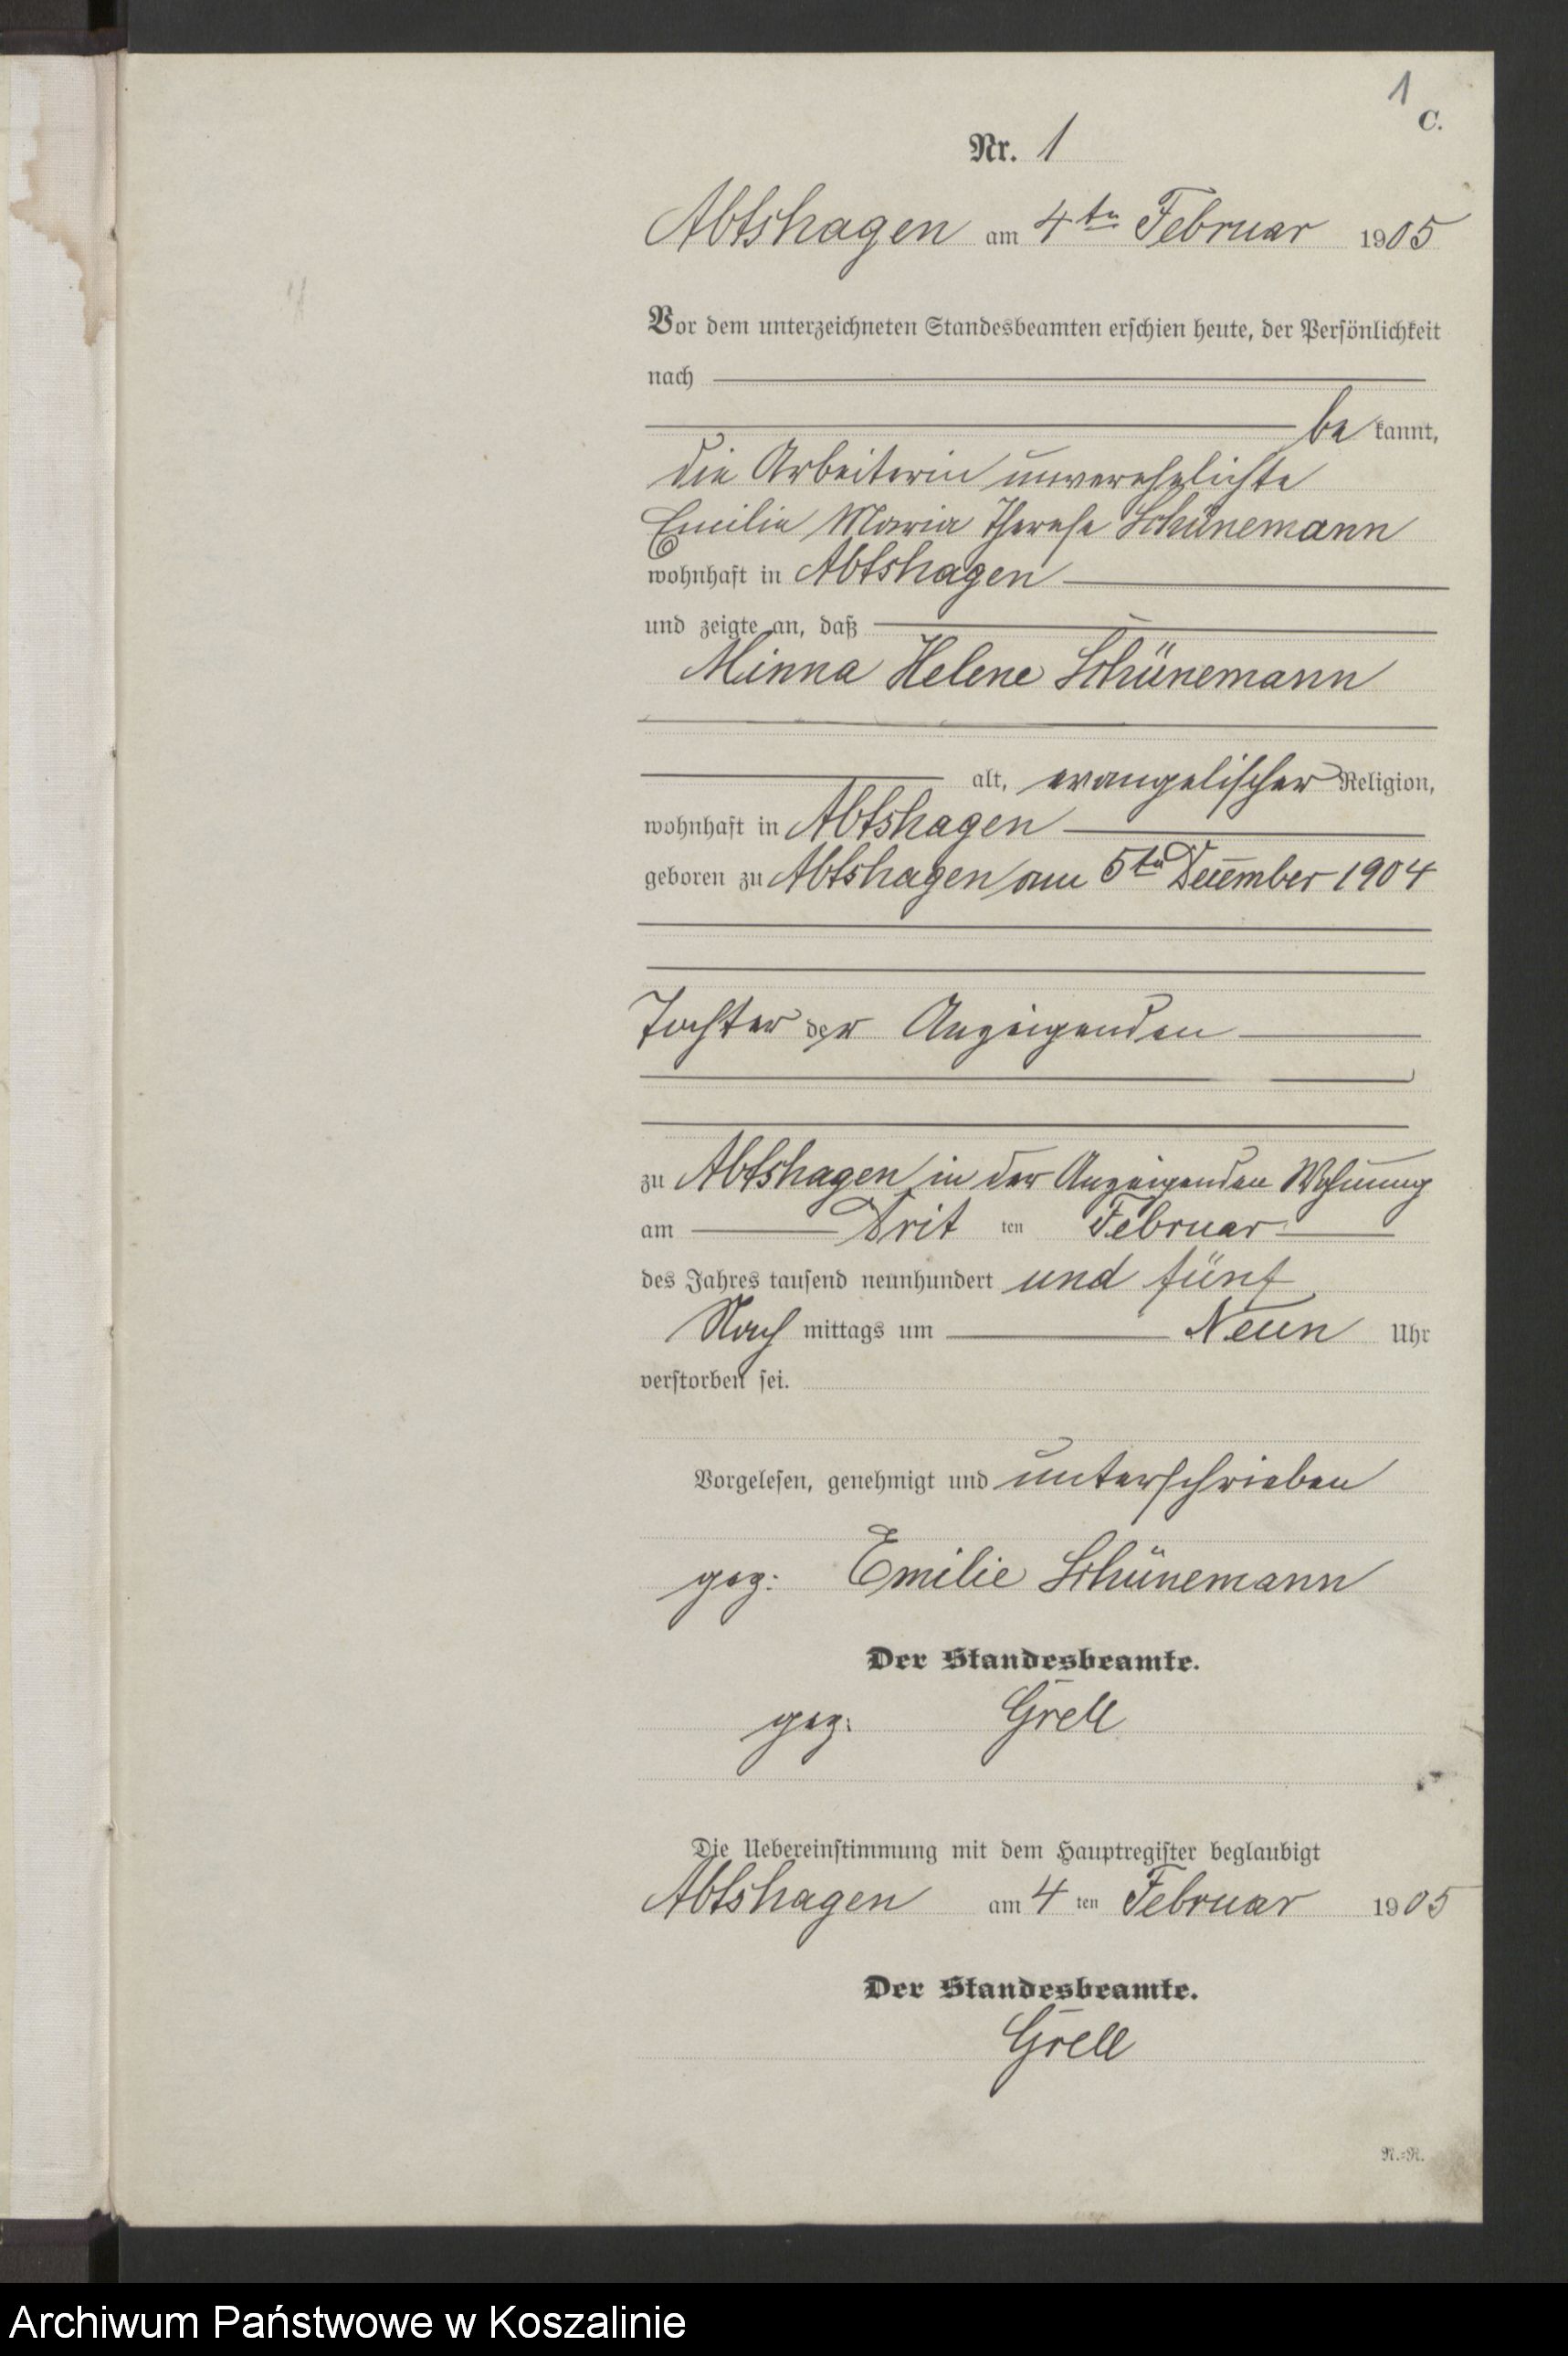 1
C.
Nr. 1
Abtshagen am 4ten Februar 1905
Vor dem unterzeichneten Standesbeamten erschien heute, der Persönlichkeit
nach
be kannt,
die Arbeiterin unverehelichte
Emilie Maria Therese Schünemann
wohnhaft in Abtshagen
und zeigte an, daß
Minna Helene Schünemann
alt, evangelischer Religion,
wohnhaft in Abtshagen
geboren zu Abtshagen am 5ten Dezember 1904
Tochter der Anzeigenden
zu Abtshagen in der Anzeigenden Wohnung
am Drit ten Februar
des Jahres tausend neunhundert und fünf
Nach mittags um Neun Uhr
verstorben sei.
Vorgelesen, genehmigt und unterschrieben
gez: Emilie Schünemann
Der Standesbeamte.
gez: Grell
Die Uebereinstimmung mit dem Hauptregister beglaubigt
Abtshagen am 4 ten Februar 1905
Der Standesbeamte.
Grell
R.=R.
Archiwum Państwowe w Koszalinie